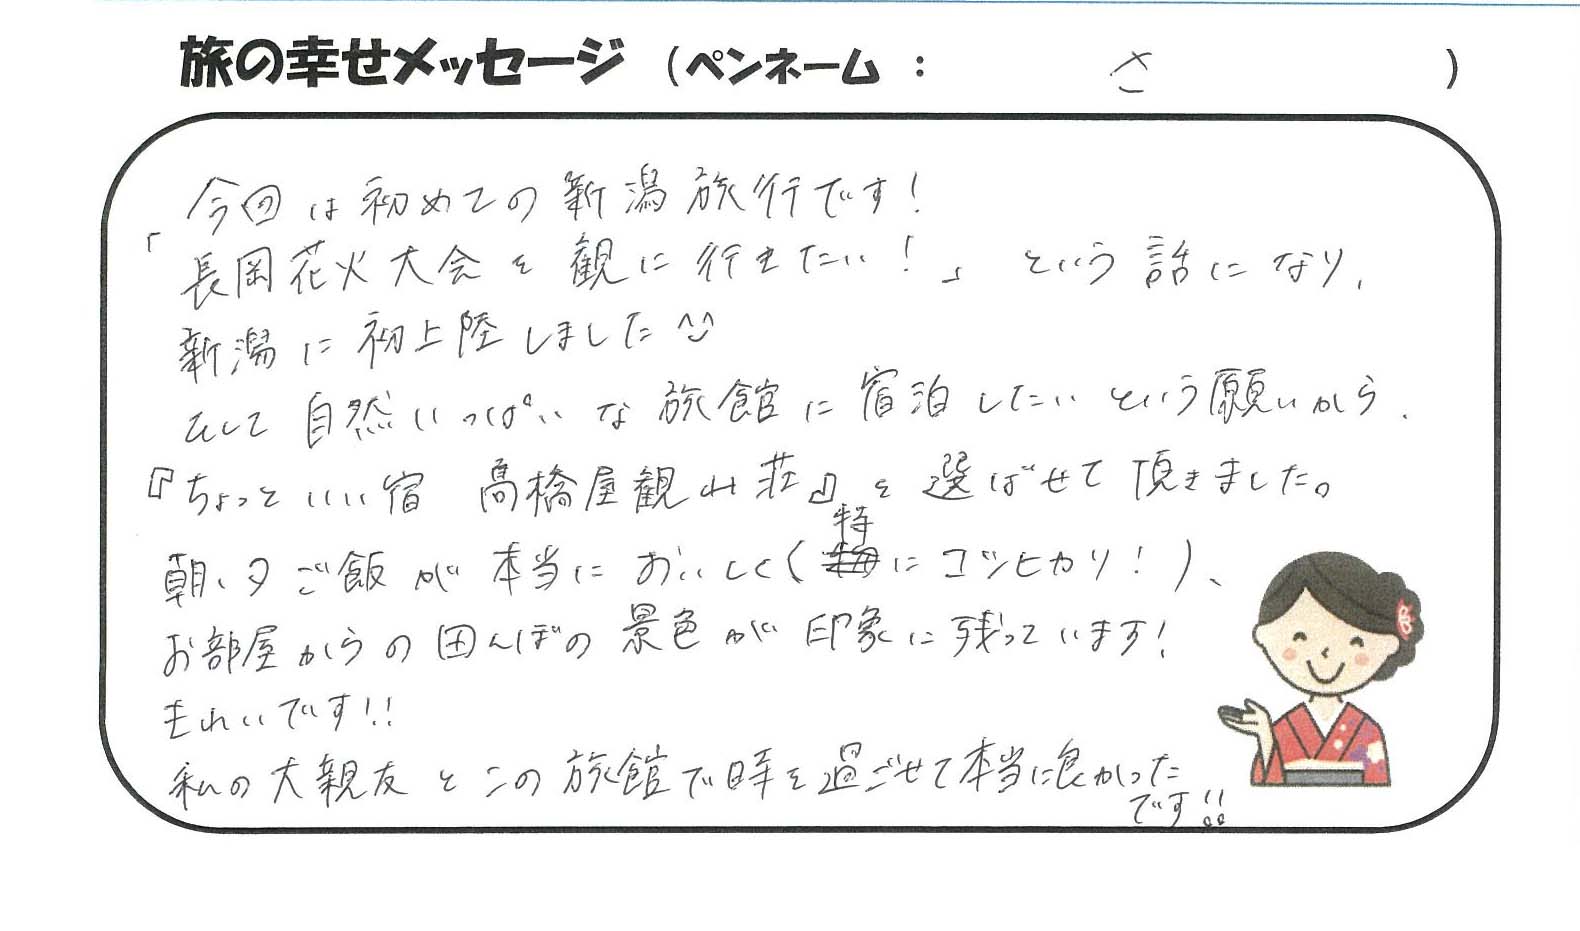 旅の幸せメッセージ (ペンネーム : さ )
今回は初めての新潟旅行です!
「長岡花火大会を観に行きたい!」という話になり、
新潟に初上陸しました^^
そして自然いっぱいな旅館に宿泊したいという願いから、
『ちょっといい宿 高橋屋観山荘』を選ばせて頂きました。
朝、夕ご飯が本当においしく(特にコシヒカリ!)、
お部屋からの田んぼの景色が印象に残っています!
きれいです!!
私の大親友とこの旅館で時を過ごせて本当に良かった
です!!